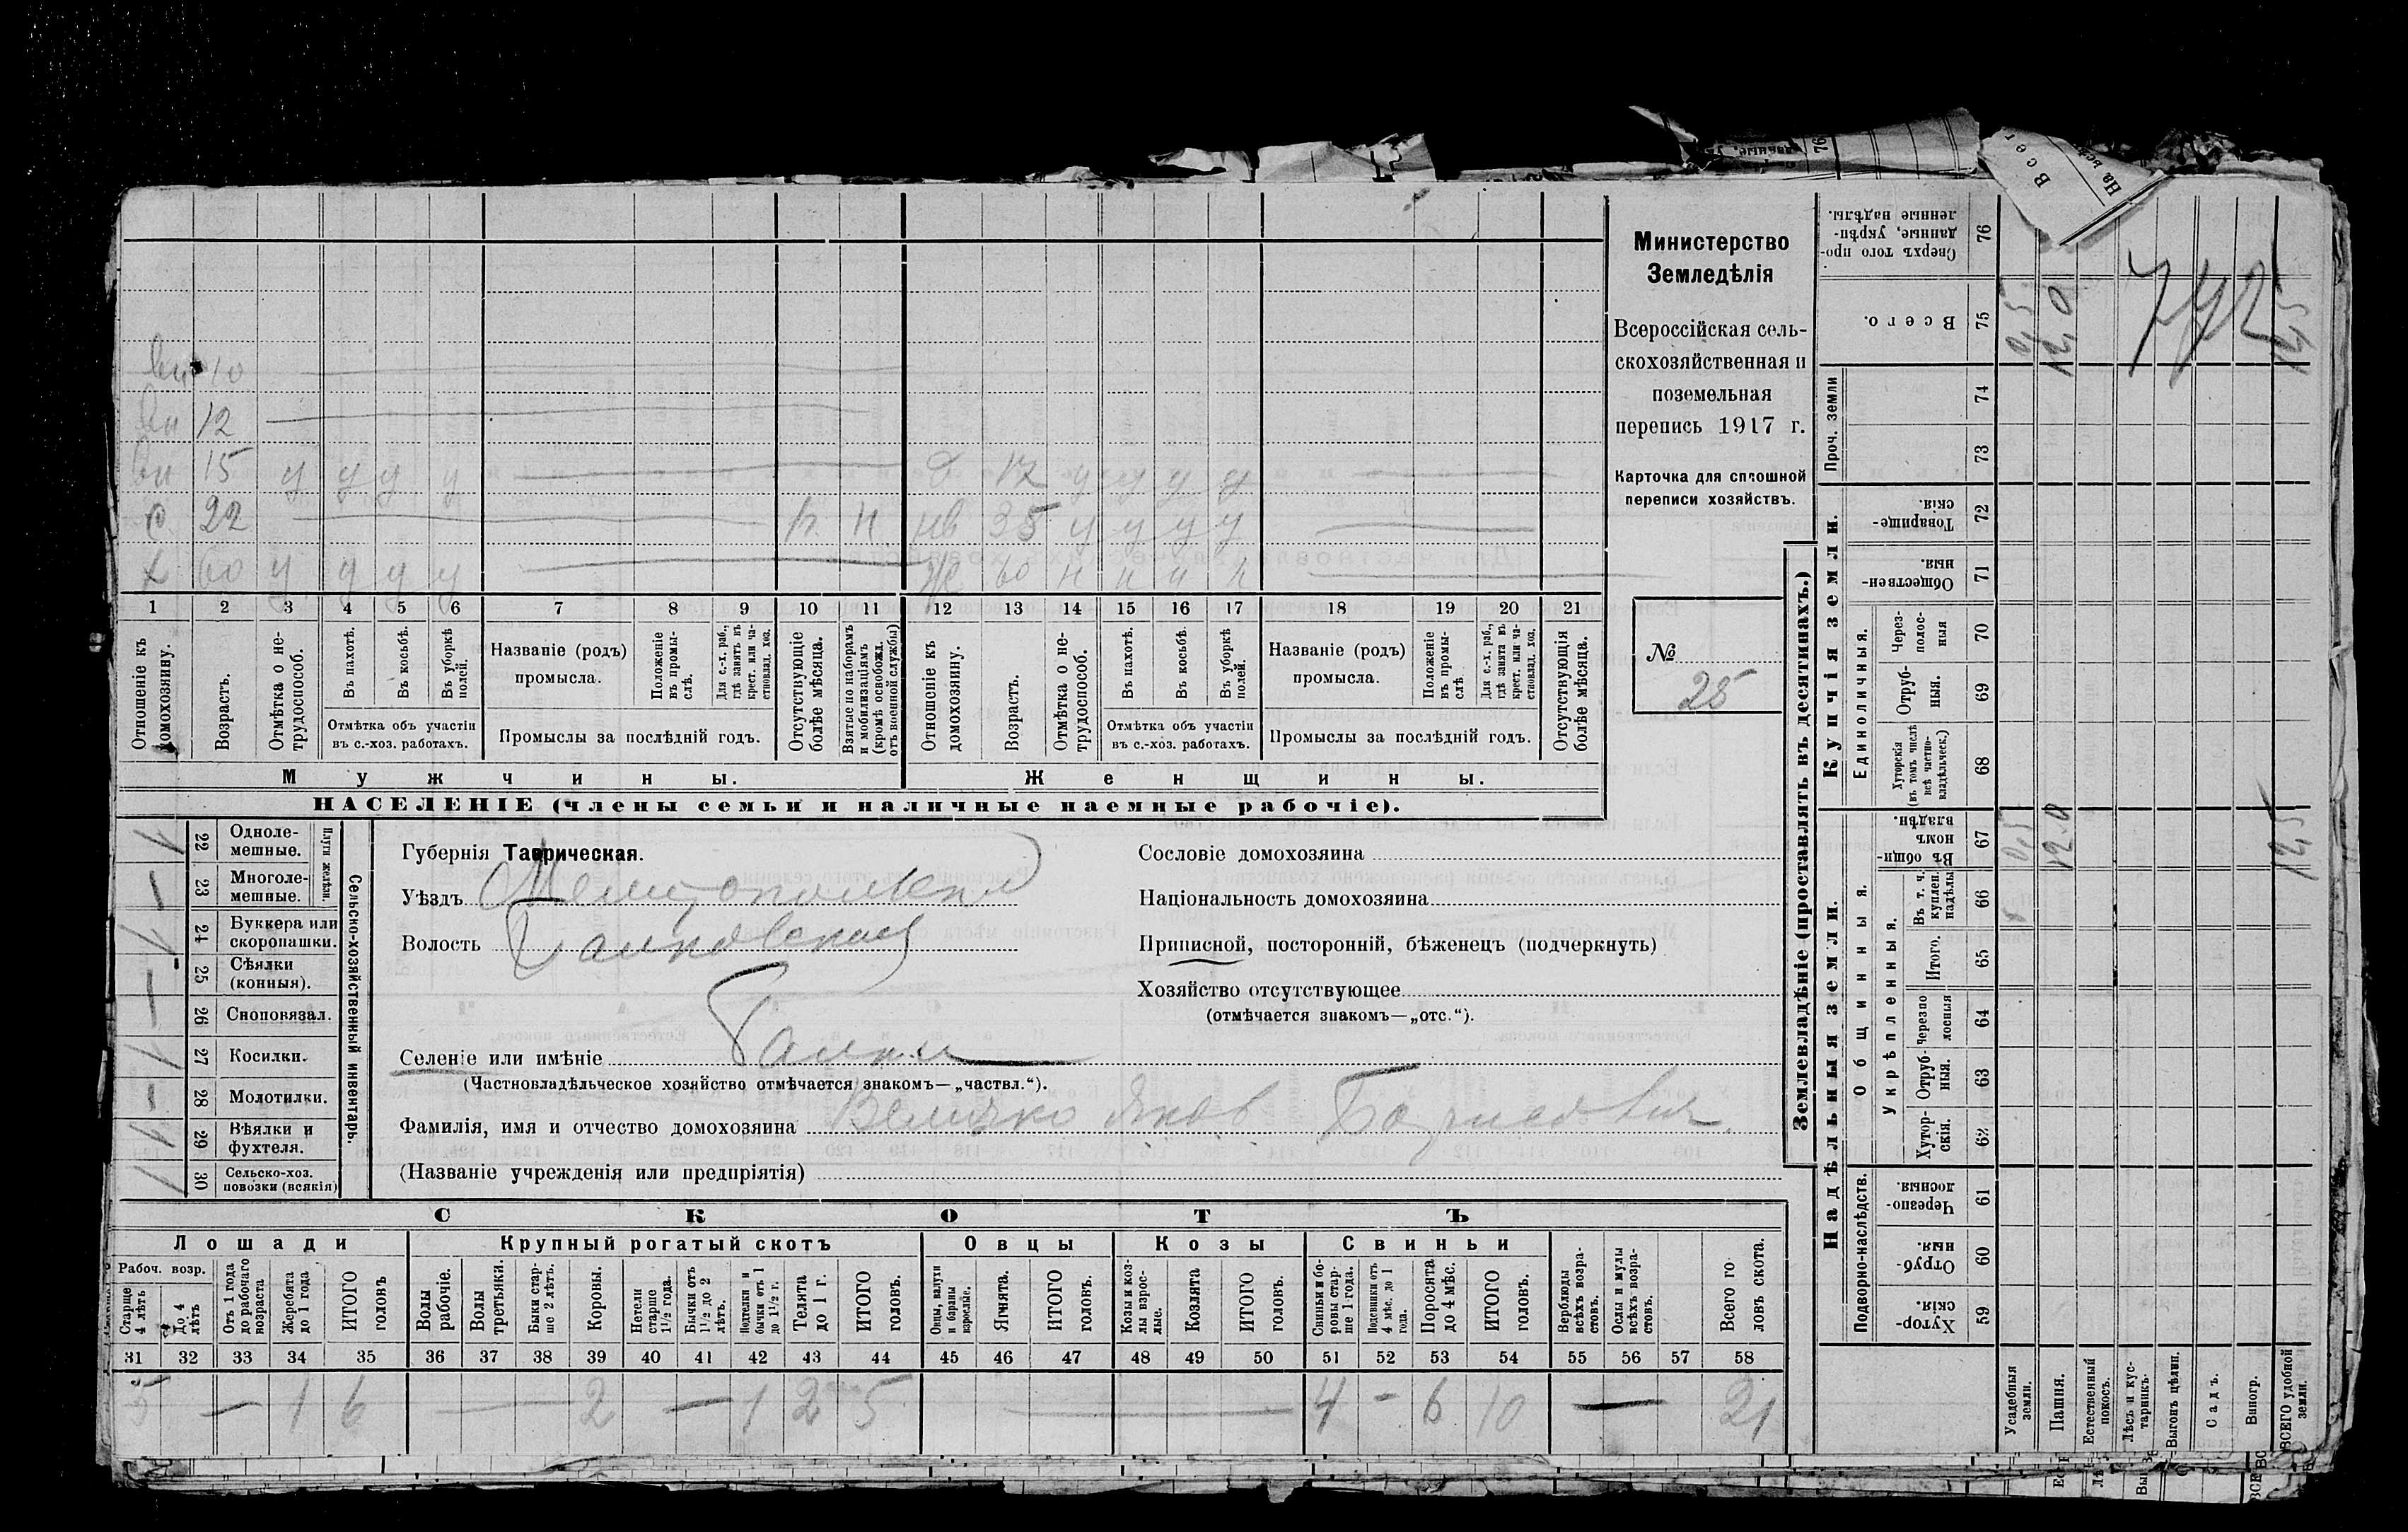 Министерство
Земледѣлія
Всероссійская сель-
скохозяйственная и
поземельная
перепись 1917 г.
Карточка для сплошной
переписи хозяйствъ.
№
25
вн 10
вн 12
вн 15 у у у у
с 22 н
х 60 у у у у
д 17 у у у у
нв 35 у у у у
ж 60 н н н н
1 2 3 4 5 6 7 8 9 10 11 12 13 14 15 16 17 18 19 20 21
Отношеніе къ домохозяину.
Возрастъ.
Отмѣтка о не-
трудоспособ.
Въ пахотѣ.
Въ косьбѣ.
Въ уборкѣ
полей.
Отмѣтка объ участіи
въ с.-хоз. работахъ.
Названіе (родъ)
промысла.
Положеніе
въ промы-
слѣ.
Для с.-х. раб.,
гдѣ занятъ въ
крест. или ча-
стновлад. хоз.
Промыслы за послѣдній годъ.
Отсутствующіе
болѣе мѣсяца.
Взятые по наборамъ
и мобилизаціямъ
(кромѣ освобожд.
отъ военной службы)
Отношеніе къ
домохозяину.
Возрастъ.
Отмѣтка о не-
трудоспособ.
Въ пахотѣ.
Въ косьбѣ.
Въ уборкѣ
полей.
Отмѣтка объ участіи
въ с.-хоз. работахъ.
Названіе (родъ)
промысла.
Положеніе
въ промы-
слѣ.
Для с.-х. раб.,
гдѣ занята въ
крест. или ча-
стновлад. хоз.
Промыслы за послѣдній годъ.
Отсутствующія
болѣе мѣсяца.
Мужчины.
Женщины.
НАСЕЛЕНІЕ (члены семьи и наличные наемные рабочіе).
22 Одноле-
мешные.
23 Многоле-
мешные.
Плуги желѣзн.
24 Буккера или
скоропашки.
25 Сѣялки
(конныя).
26 Сноповязал.
27 Косилки.
28 Молотилки.
29 Вѣялки и
фухтеля.
30 Сельско-хоз.
повозки (всякія)
Сельско-хозяйственный инвентарь.
Губернія Таврическая.
Уѣздъ Мелитопольскій
Волость
Селеніе или имѣніе
(Частновладѣльческое хозяйство отмѣчается знакомъ—„частвл.“).
Фамилія, имя и отчество домохозяина Величко Яков
(Названіе учрежденія или предпріятія)
Сословіе домохозяина
Національность домохозяина
Приписной, посторонній, бѣженецъ (подчеркнуть)
Хозяйство отсутствующее
(отмѣчается знакомъ—„отс.“).
СКОТЪ
Лошади
Крупный рогатый скотъ
Овцы
Козы
Свиньи
Рабоч. возр.
Старше
4 лѣтъ
До 4
лѣтъ
Отъ 1 года
до рабочаго
возраста
Жеребята
до 1 года
ИТОГО
головъ
Волы
рабочіе.
Волы
третьяки.
Быки стар-
ше 2 лѣтъ.
Коровы.
Нетели
старше
1½ года.
Бычки отъ
1½ до 2
лѣтъ.
Подтелки и
бычки отъ 1
до 1½ г.
Телята
до 1 г.
ИТОГО
головъ.
Овцы, валухи
и бараны
взрослые.
Ягнята.
ИТОГО
головъ.
Козы и коз-
лы взрос-
лые.
Козлята
ИТОГО
головъ.
Свиньи и бо-
ровы стар-
ше 1 года.
Подсвинки отъ
4 мѣс. до 1
года.
Поросята
до 4 мѣс.
ИТОГО
головъ.
Верблюды
всѣхъ возра-
стовъ.
Ослы и мулы
всѣхъ возра-
стовъ.
Всего го-
ловъ скота.
31 32 33 34 35 36 37 38 39 40 41 42 43 44 45 46 47 48 49 50 51 52 53 54 55 56 57 58
5 — 1 6 — 2 — 1 2 5 — 4 - 6 10 — 21
Землевладѣніе (проставлять въ десятинахъ.)
Надѣльныя земли.
Купчія земли.
Проч. земли
Подворно-наслѣдств.
Общинныя.
Укрѣпленныя.
Единоличныя.
Сверхъ того про-
данные, укрѣп-
ленные надѣлы.
76
Всего.
75
74
73
Товарище-
скія.
72
Обществен-
ныя.
71
Через-
полос-
ныя
70
Отруб-
ныя.
69
Хуторскія
(въ томъ числѣ
всѣ частно-
владѣльческ.)
68
Въ общин-
номъ
владѣн.
67
Въ т. ч.
куплен.
надѣлы
66
Итого.
65
Черезпо
лосныя
64
Отруб-
ныя.
63
Хутор-
скія.
62
Черезпо-
лосныя.
61
Отруб-
ныя.
60
Хутор-
скія.
59
Усадебныя
земли.
Пашня.
Естественный
покосъ.
Лѣсъ и кус-
тарникъ.
Выгонъ цѣлин.
Садъ.
Виногр.
ВСЕГО удобной
земли.
0,5
12,0
12,5
0,5
12,0
12,5
742